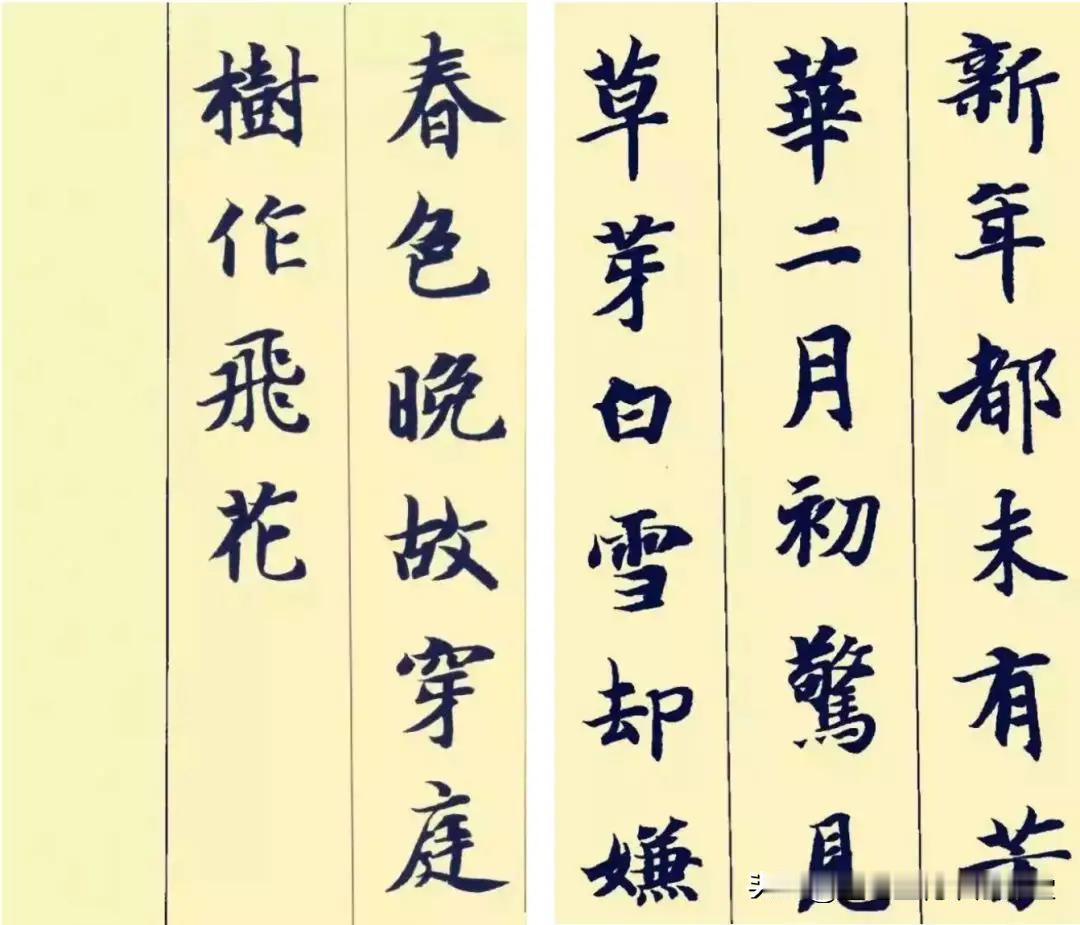 新年都未有芳
華二月初驚見
草芽白雪却嫌
春色晚故穿庭
樹作飛花